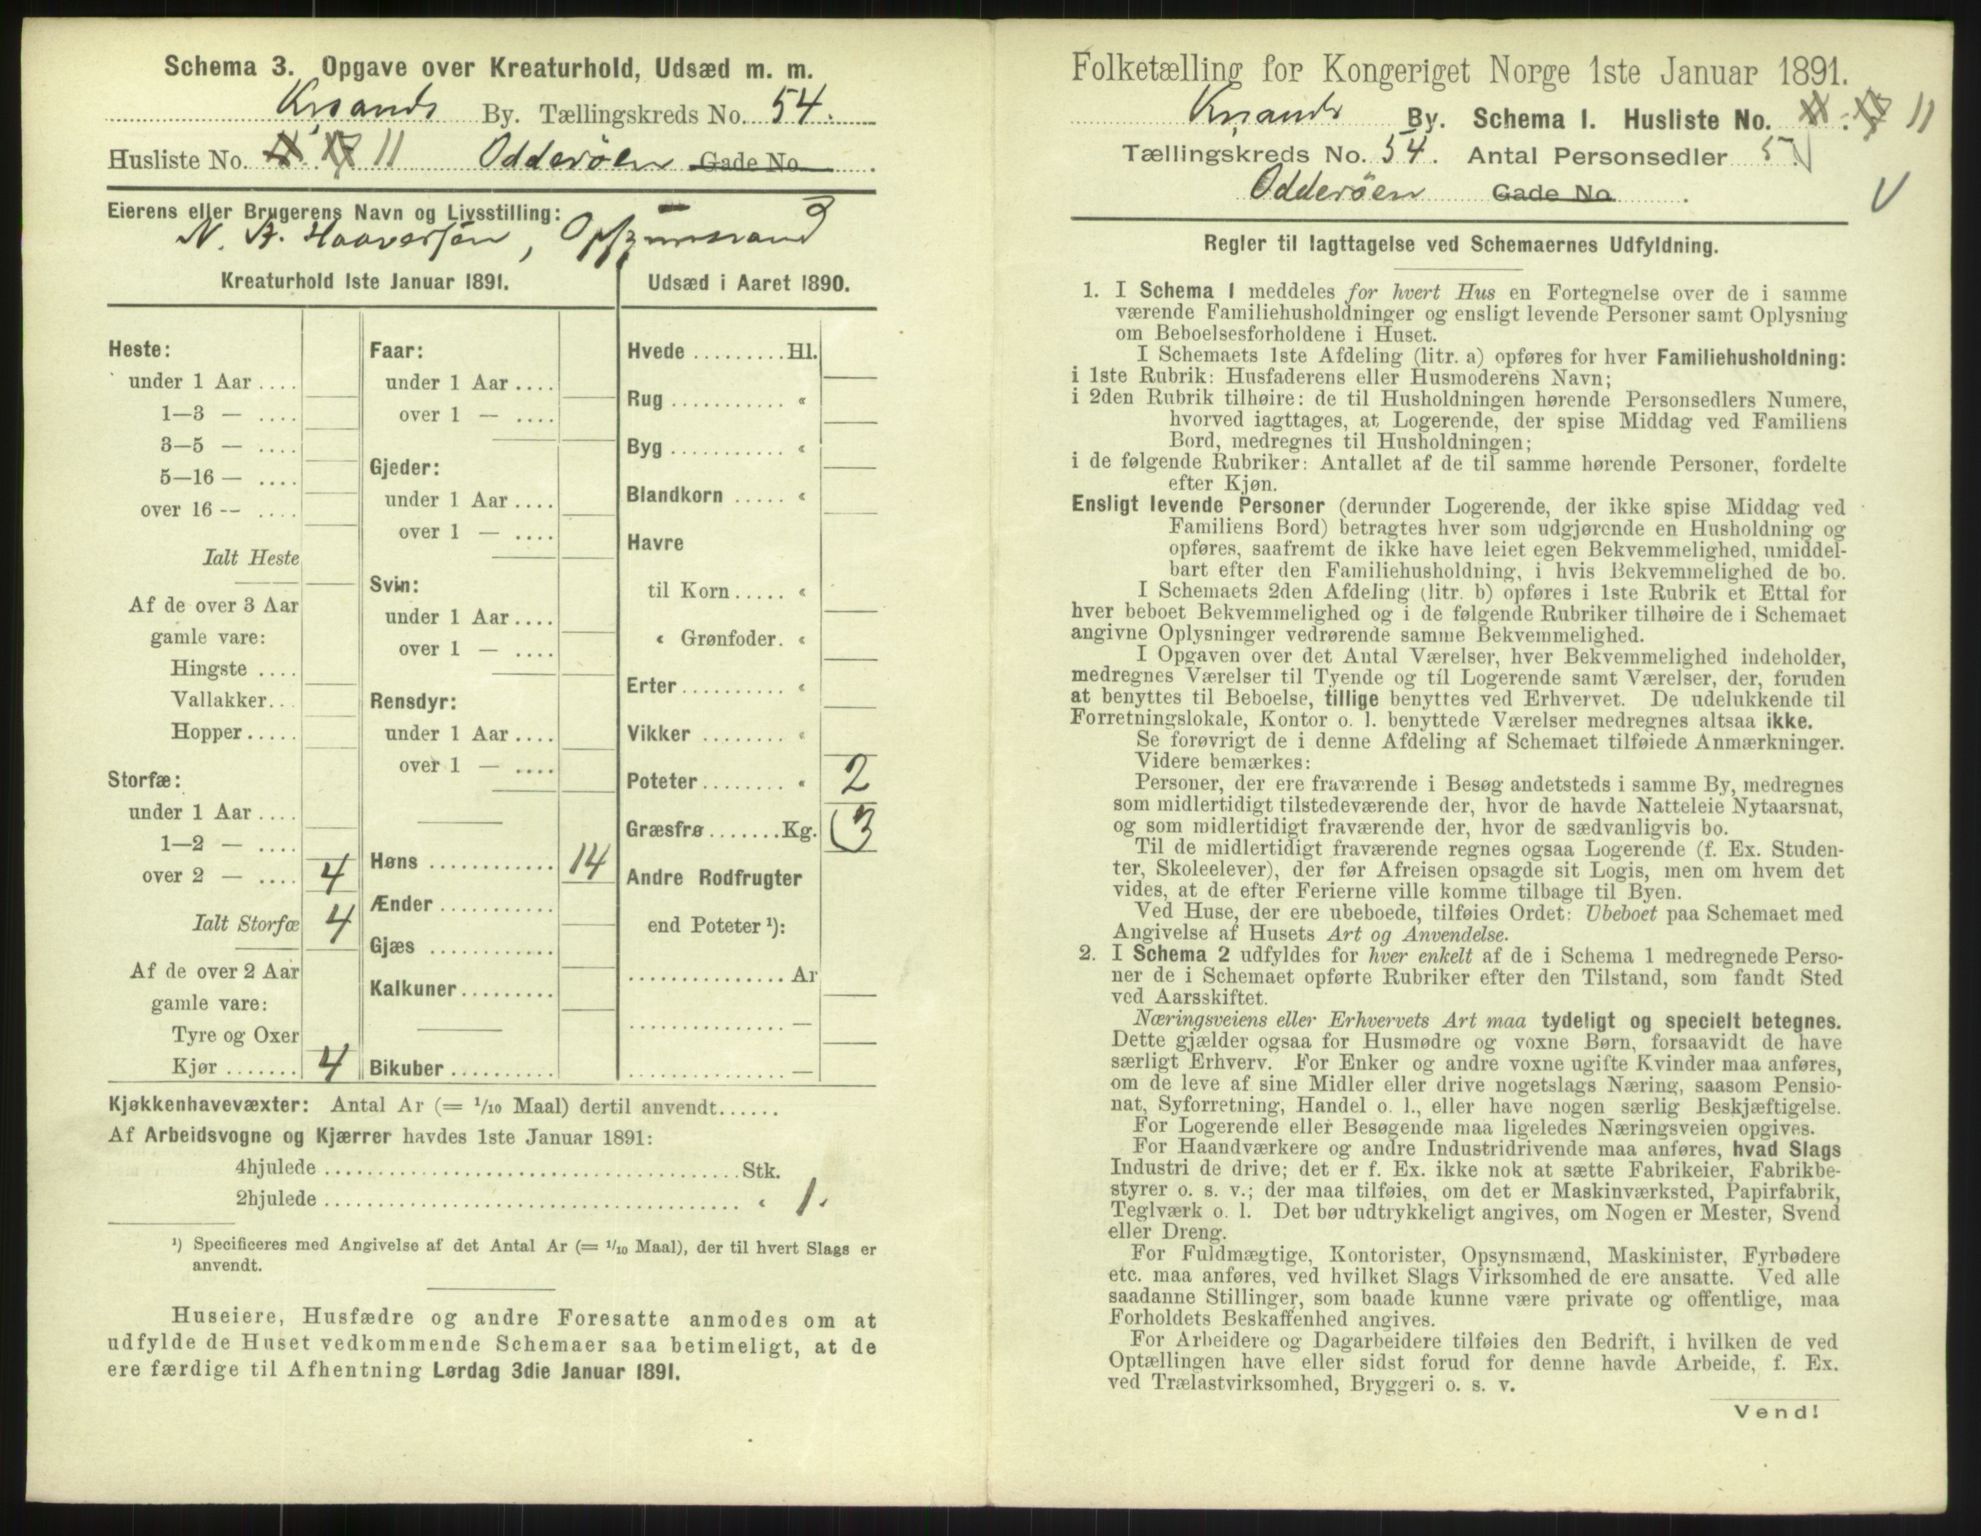 Schema 3. Opgave over Kreaturhold, Udsæd m. m.
Krsands By. Tællingskreds No. 54.
Husliste No. 11 Odderøen Gade No.
Eierens eller Brugerens Navn og Livsstilling:
N. A. Haaversen, Opsynsmand
Kreaturhold 1ste Januar 1891.
Heste:
under 1 Aar ....
1—3 — ....
3—5 — ....
5—16 — ....
over 16 -- ....
Ialt Heste
Af de over 3 Aar
gamle vare:
Hingste ....
Vallakker...
Hopper.....
Storfæ:
under 1 Aar ....
1—2 — ....
over 2 — .... 4
Ialt Storfæ 4
Af de over 2 Aar
gamle vare:
Tyre og Oxer
Kjør ....... 4
Faar:
under 1 Aar ....
over 1 — ....
Gjeder:
under 1 Aar ....
over 1 — ....
Svin:
under 1 Aar ....
over 1 — ....
Rensdyr:
under 1 Aar ....
over 1 — ....
Høns ........... 14
Ænder ..........
Gjæs ...........
Kalkuner.........
Bikuber ..........
Udsæd i Aaret 1890.
Hvede .........Hl.
Rug ........... «
Byg ........... «
Blandkorn ..... «
Havre
til Korn..... «
« Grønfoder. «
Erter.......... «
Vikker ........ «
Poteter........ « 2
Græsfrø.......Kg. 3
Andre Rodfrugter
end Poteter ¹):
............... Ar
............... —
............... —
Kjøkkenhavevæxter: Antal Ar (= 1/10 Maal) dertil anvendt......
Af Arbeidsvogne og Kjærrer havdes 1ste Januar 1891:
4hjulede ........................................Stk.
2hjulede ........................................ « 1.
¹) Specificeres med Angivelse af det Antal Ar (= 1/10 Maal), der til hvert Slags er
anvendt.
Huseiere, Husfædre og andre Foresatte anmodes om at
udfylde de Huset vedkommende Schemaer saa betimeligt, at de
ere færdige til Afhentning Lørdag 3die Januar 1891.
Folketælling for Kongeriget Norge 1ste Januar 1891.
Krsands By. Schema I. Husliste No. 11
Tællingskreds No. 54. Antal Personsedler 5.
Odderøen Gade No.
Regler til Iagttagelse ved Schemaernes Udfyldning.
1. I Schema 1 meddeles for hvert Hus en Fortegnelse over de i samme
værende Familiehusholdninger og ensligt levende Personer samt Oplysning
om Beboelsesforholdene i Huset.
I Schemaets 1ste Afdeling (litr. a) opføres for hver Familiehusholdning:
i 1ste Rubrik: Husfaderens eller Husmoderens Navn;
i 2den Rubrik tilhøire: de til Husholdningen hørende Personsedlers Numere,
hvorved iagttages, at Logerende, der spise Middag ved Familiens
Bord, medregnes til Husholdningen;
i de følgende Rubriker: Antallet af de til samme hørende Personer, fordelte
efter Kjøn.
Ensligt levende Personer (derunder Logerende, der ikke spise Middag ved
Familiens Bord) betragtes hver som udgjørende en Husholdning og
opføres, saafremt de ikke have leiet egen Bekvemmelighed, umiddel-
bart efter den Familiehusholdning, i hvis Bekvemmelighed de bo.
I Schemaets 2den Afdeling (litr. b) opføres i 1ste Rubrik et Ettal for
hver beboet Bekvemmelighed og i de følgende Rubriker tilhøire de i Schemaet
angivne Oplysninger vedrørende samme Bekvemmelighed.
I Opgaven over det Antal Værelser, hver Bekvemmelighed indeholder,
medregnes Værelser til Tyende og til Logerende samt Værelser, der, foruden
at benyttes til Beboelse, tillige benyttes ved Erhvervet. De udelukkende til
Forretningslokale, Kontor o. l. benyttede Værelser medregnes altsaa ikke.
Se forøvrigt de i denne Afdeling af Schemaet tilføiede Anmærkninger.
Videre bemærkes:
Personer, der ere fraværende i Besøg andetsteds i samme By, medregnes
som midlertidigt tilstedeværende der, hvor de havde Natteleie Nytaarsnat,
og som midlertidigt fraværende der, hvor de sædvanligvis bo.
Til de midlertidigt fraværende regnes ogsaa Logerende (f. Ex. Studen-
ter, Skoleelever), der før Afreisen opsagde sit Logis, men om hvem det
vides, at de efter Ferierne ville komme tilbage til Byen.
Ved Huse, der ere ubeboede, tilføies Ordet: Ubeboet paa Schemaet med
Angivelse af Husets Art og Anvendelse.
2. I Schema 2 udfyldes for hver enkelt af de i Schema 1 medregnede Perso-
ner de i Schemaet opførte Rubriker efter den Tilstand, som fandt Sted
ved Aarsskiftet.
Næringsveiens eller Erhvervets Art maa tydeligt og specielt betegnes.
Dette gjælder ogsaa for Husmødre og voxne Børn, forsaavidt de have
særligt Erhverv. For Enker og andre voxne ugifte Kvinder maa anføres,
om de leve af sine Midler eller drive nogetslags Næring, saasom Pensio-
nat, Syforretning, Handel o. l., eller have nogen særlig Beskjæftigelse.
For Logerende eller Besøgende maa ligeledes Næringsveien opgives.
For Haandværkere og andre Industridrivende maa anføres, hvad Slags
Industri de drive; det er f. Ex. ikke nok at sætte Fabrikeier, Fabrikbe-
styrer o. s. v.; der maa tilføies, om det er Maskinværksted, Papirfabrik,
Teglværk o. l. Det bør udtrykkeligt angives, om Nogen er Mester, Svend
eller Dreng.
For Fuldmægtige, Kontorister, Opsynsmænd, Maskinister, Fyrbødere
etc. maa anføres, ved hvilket Slags Virksomhed de ere ansatte. Ved alle
saadanne Stillinger, som baade kunne være private og offentlige, maa
Forholdets Beskaffenhed angives.
For Arbeidere og Dagarbeidere tilføies den Bedrift, i hvilken de ved
Optællingen have eller sidst forud for denne havde Arbeide, f. Ex.
ved Trælastvirksomhed, Bryggeri o. s. v.
Vend!